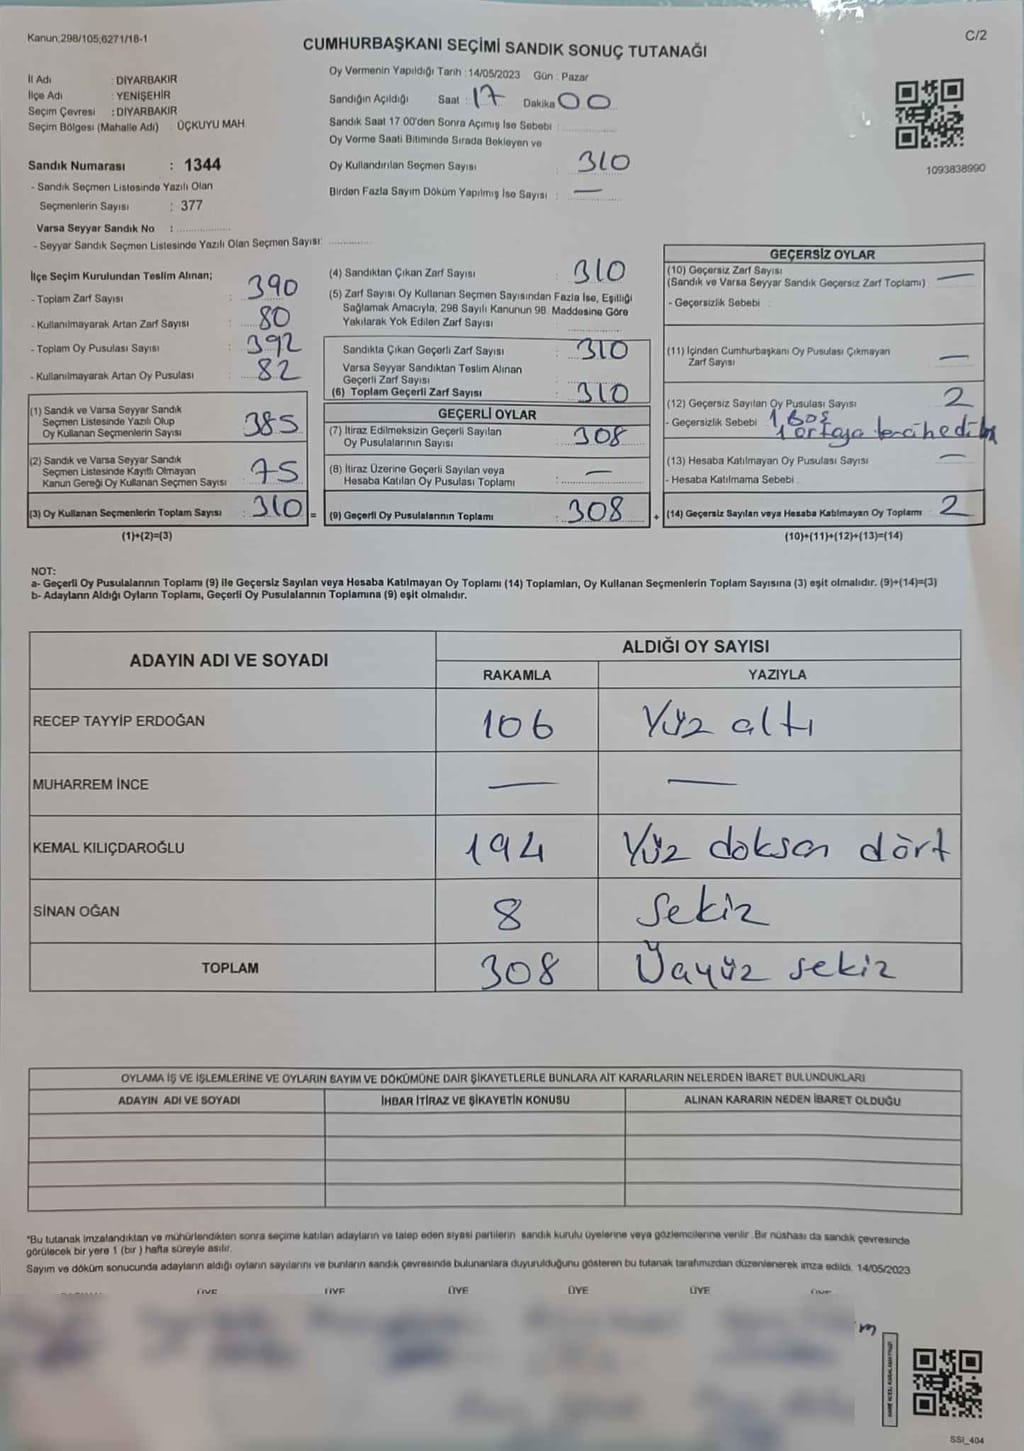 Kanun;298/105;6271/18-1
C/2
CUMHURBAŞKANI SEÇİMİ SANDIK SONUÇ TUTANAĞI
İl Adı : DİYARBAKIR
İlçe Adı : YENİŞEHİR
Seçim Çevresi : DİYARBAKIR
Seçim Bölgesi (Mahalle Adı) : ÜÇKUYU MAH
Sandık Numarası : 1344
- Sandık Seçmen Listesinde Yazılı Olan
Seçmenlerin Sayısı : 377
Varsa Seyyar Sandık No :
- Seyyar Sandık Seçmen Listesinde Yazılı Olan Seçmen Sayısı:
Oy Vermenin Yapıldığı Tarih : 14/05/2023 Gün : Pazar
Sandığın Açıldığı Saat : 17 Dakika 00
Sandık Saat 17:00'den Sonra Açımış İse Sebebi :
Oy Verme Saati Bitiminde Sırada Bekleyen ve
Oy Kullandırılan Seçmen Sayısı : 310
Birden Fazla Sayım Döküm Yapılmış İse Sayısı : —
1093838990
İlçe Seçim Kurulundan Teslim Alınan;
- Toplam Zarf Sayısı : 390
- Kullanılmayarak Artan Zarf Sayısı : 80
- Toplam Oy Pusulası Sayısı : 392
- Kullanılmayarak Artan Oy Pusulası : 82
(1) Sandık ve Varsa Seyyar Sandık
Seçmen Listesinde Yazılı Olup
Oy Kullanan Seçmenlerin Sayısı : 385
(2) Sandık ve Varsa Seyyar Sandık
Seçmen Listesinde Kayıtlı Olmayan
Kanun Gereği Oy Kullanan Seçmen Sayısı : 75
(3) Oy Kullanan Seçmenlerin Toplam Sayısı : 310 =
(1)+(2)=(3)
(4) Sandıktan Çıkan Zarf Sayısı : 310
(5) Zarf Sayısı Oy Kullanan Seçmen Sayısından Fazla İse, Eşitliği
Sağlamak Amacıyla, 298 Sayılı Kanunun 98. Maddesine Göre
Yakılarak Yok Edilen Zarf Sayısı :
Sandıkta Çıkan Geçerli Zarf Sayısı : 310
Varsa Seyyar Sandıktan Teslim Alınan
Geçerli Zarf Sayısı :
(6) Toplam Geçerli Zarf Sayısı : 310
GEÇERLİ OYLAR
(7) İtiraz Edilmeksizin Geçerli Sayılan
Oy Pusulalarının Sayısı : 308
(8) İtiraz Üzerine Geçerli Sayılan veya
Hesaba Katılan Oy Pusulası Toplamı : —
(9) Geçerli Oy Pusulalarının Toplamı : 308 +
GEÇERSİZ OYLAR
(10) Geçersiz Zarf Sayısı
(Sandık ve Varsa Seyyar Sandık Geçersiz Zarf Toplamı) : —
- Geçersizlik Sebebi :
(11) İçinden Cumhurbaşkanı Oy Pusulası Çıkmayan
Zarf Sayısı : —
(12) Geçersiz Sayılan Oy Pusulası Sayısı : 2
- Geçersizlik Sebebi : 1 Boş
1 ortaya
(13) Hesaba Katılmayan Oy Pusulası Sayısı : —
- Hesaba Katılmama Sebebi :
(14) Geçersiz Sayılan veya Hesaba Katılmayan Oy Toplamı : 2
(10)+(11)+(12)+(13)=(14)
NOT:
a- Geçerli Oy Pusulalarının Toplamı (9) ile Geçersiz Sayılan veya Hesaba Katılmayan Oy Toplamı (14) Toplamları, Oy Kullanan Seçmenlerin Toplam Sayısına (3) eşit olmalıdır. (9)+(14)=(3)
b- Adayların Aldığı Oyların Toplamı, Geçerli Oy Pusulalarının Toplamına (9) eşit olmalıdır.
ADAYIN ADI VE SOYADI
ALDIĞI OY SAYISI
RAKAMLA YAZIYLA
RECEP TAYYİP ERDOĞAN 106 Yüz altı
MUHARREM İNCE — —
KEMAL KILIÇDAROĞLU 194 Yüz doksan dört
SİNAN OĞAN 8 Sekiz
TOPLAM 308 Üçyüz sekiz
OYLAMA İŞ VE İŞLEMLERİNE VE OYLARIN SAYIM VE DÖKÜMÜNE DAİR ŞİKAYETLERLE BUNLARA AİT KARARLARIN NELERDEN İBARET BULUNDUKLARI
ADAYIN ADI VE SOYADI İHBAR İTİRAZ VE ŞİKAYETİN KONUSU ALINAN KARARIN NEDEN İBARET OLDUĞU
*Bu tutanak imzalandıktan ve mühürlendikten sonra seçime katılan adayların ve talep eden siyasi partilerin sandık kurulu üyelerine veya gözlemcilerine verilir. Bir nüshası da sandık çevresinde
görülecek bir yere 1 (bir ) hafta süreyle asılır.
Sayım ve döküm sonucunda adayların aldığı oyların sayılarını ve bunların sandık çevresinde bulunanlara duyurulduğunu gösteren bu tutanak tarafımızdan düzenlenerek imza edildi. 14/05/2023
ÜYE ÜYE ÜYE ÜYE ÜYE
SSI_404